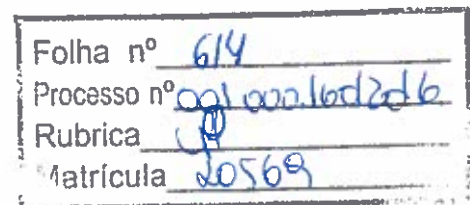 Folha nº 614
Processo nº 001.000.16d2d6
Rubrica
Matrícula 20569